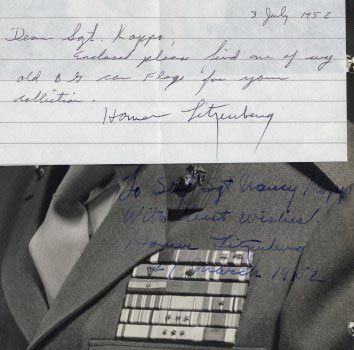 3 July 1952
Dear Sgt. Kappo,
Enclosed please find one of my
old B G car Flags for your
collection.
Homer Litzenberg
To Sgt Nancy
With best wishes!
Homer Litzenberg
27 March 1952